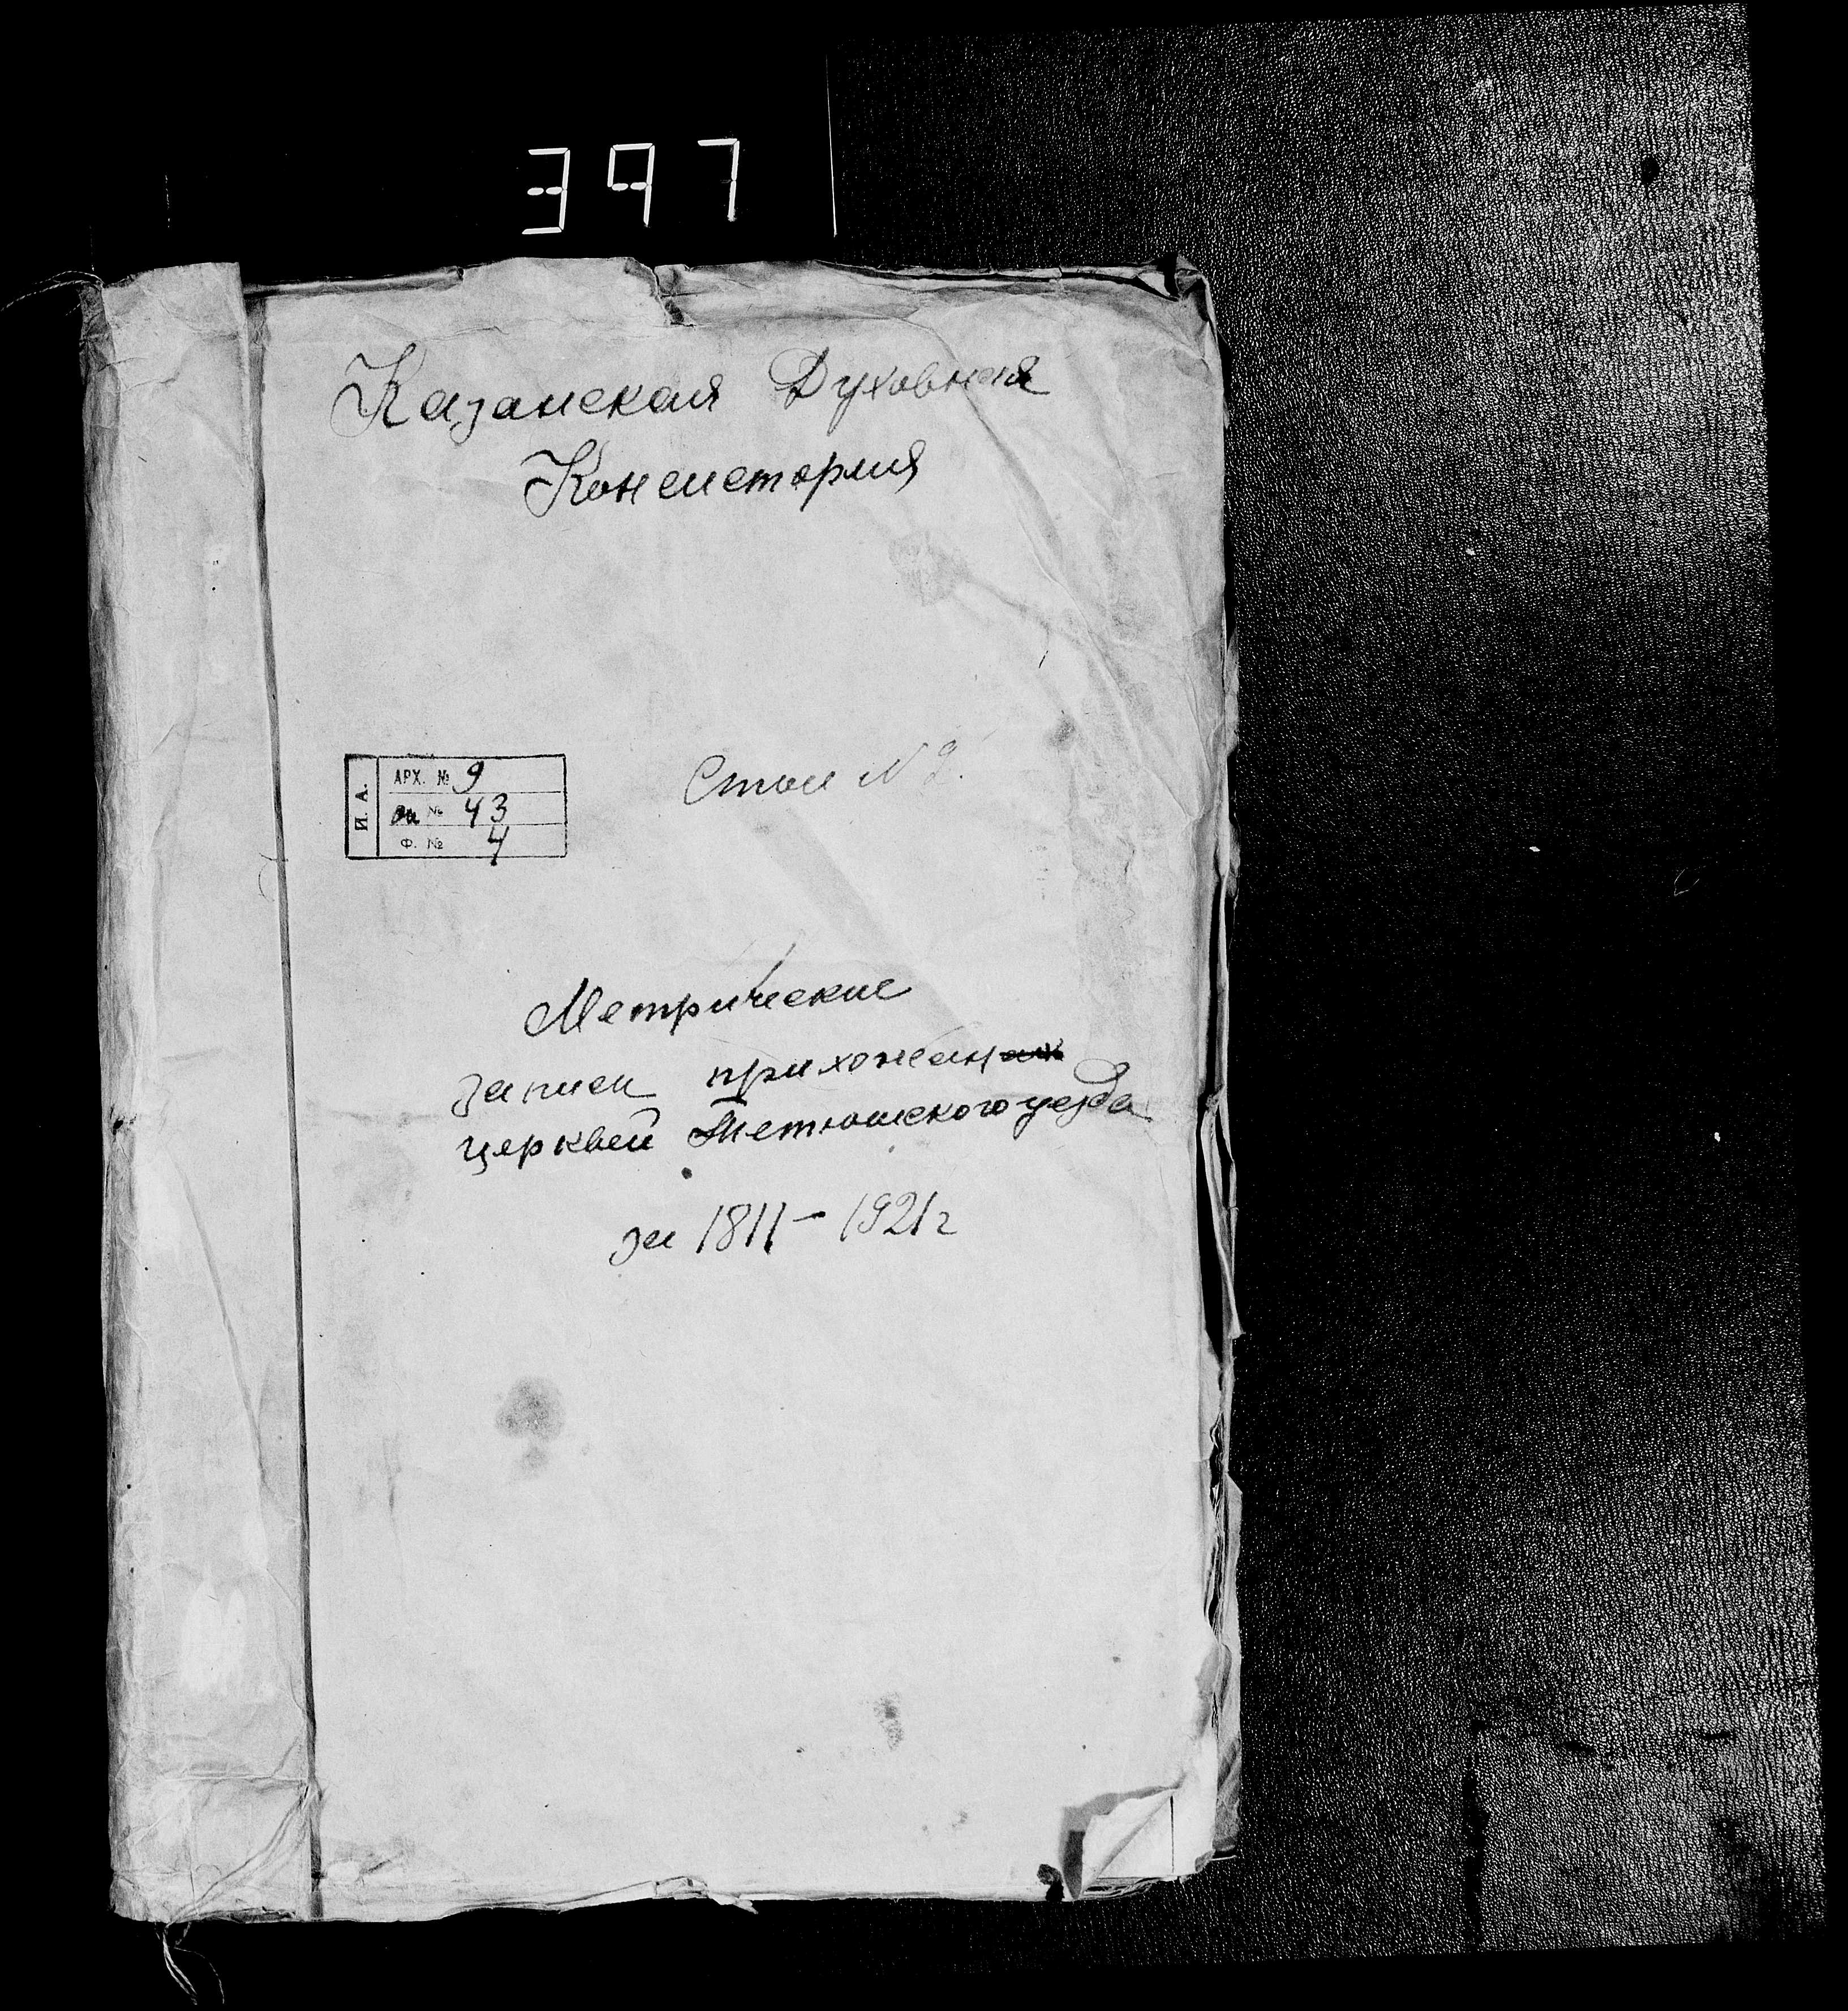 397
Казанская Духовная
Консистория
И. А.
АРХ. № 9
оп № 43
Ф. № 4
Стол № 2.
Метрические
записи прихожан
церквей Тетюшского уезда
за 1811 – 1921 г